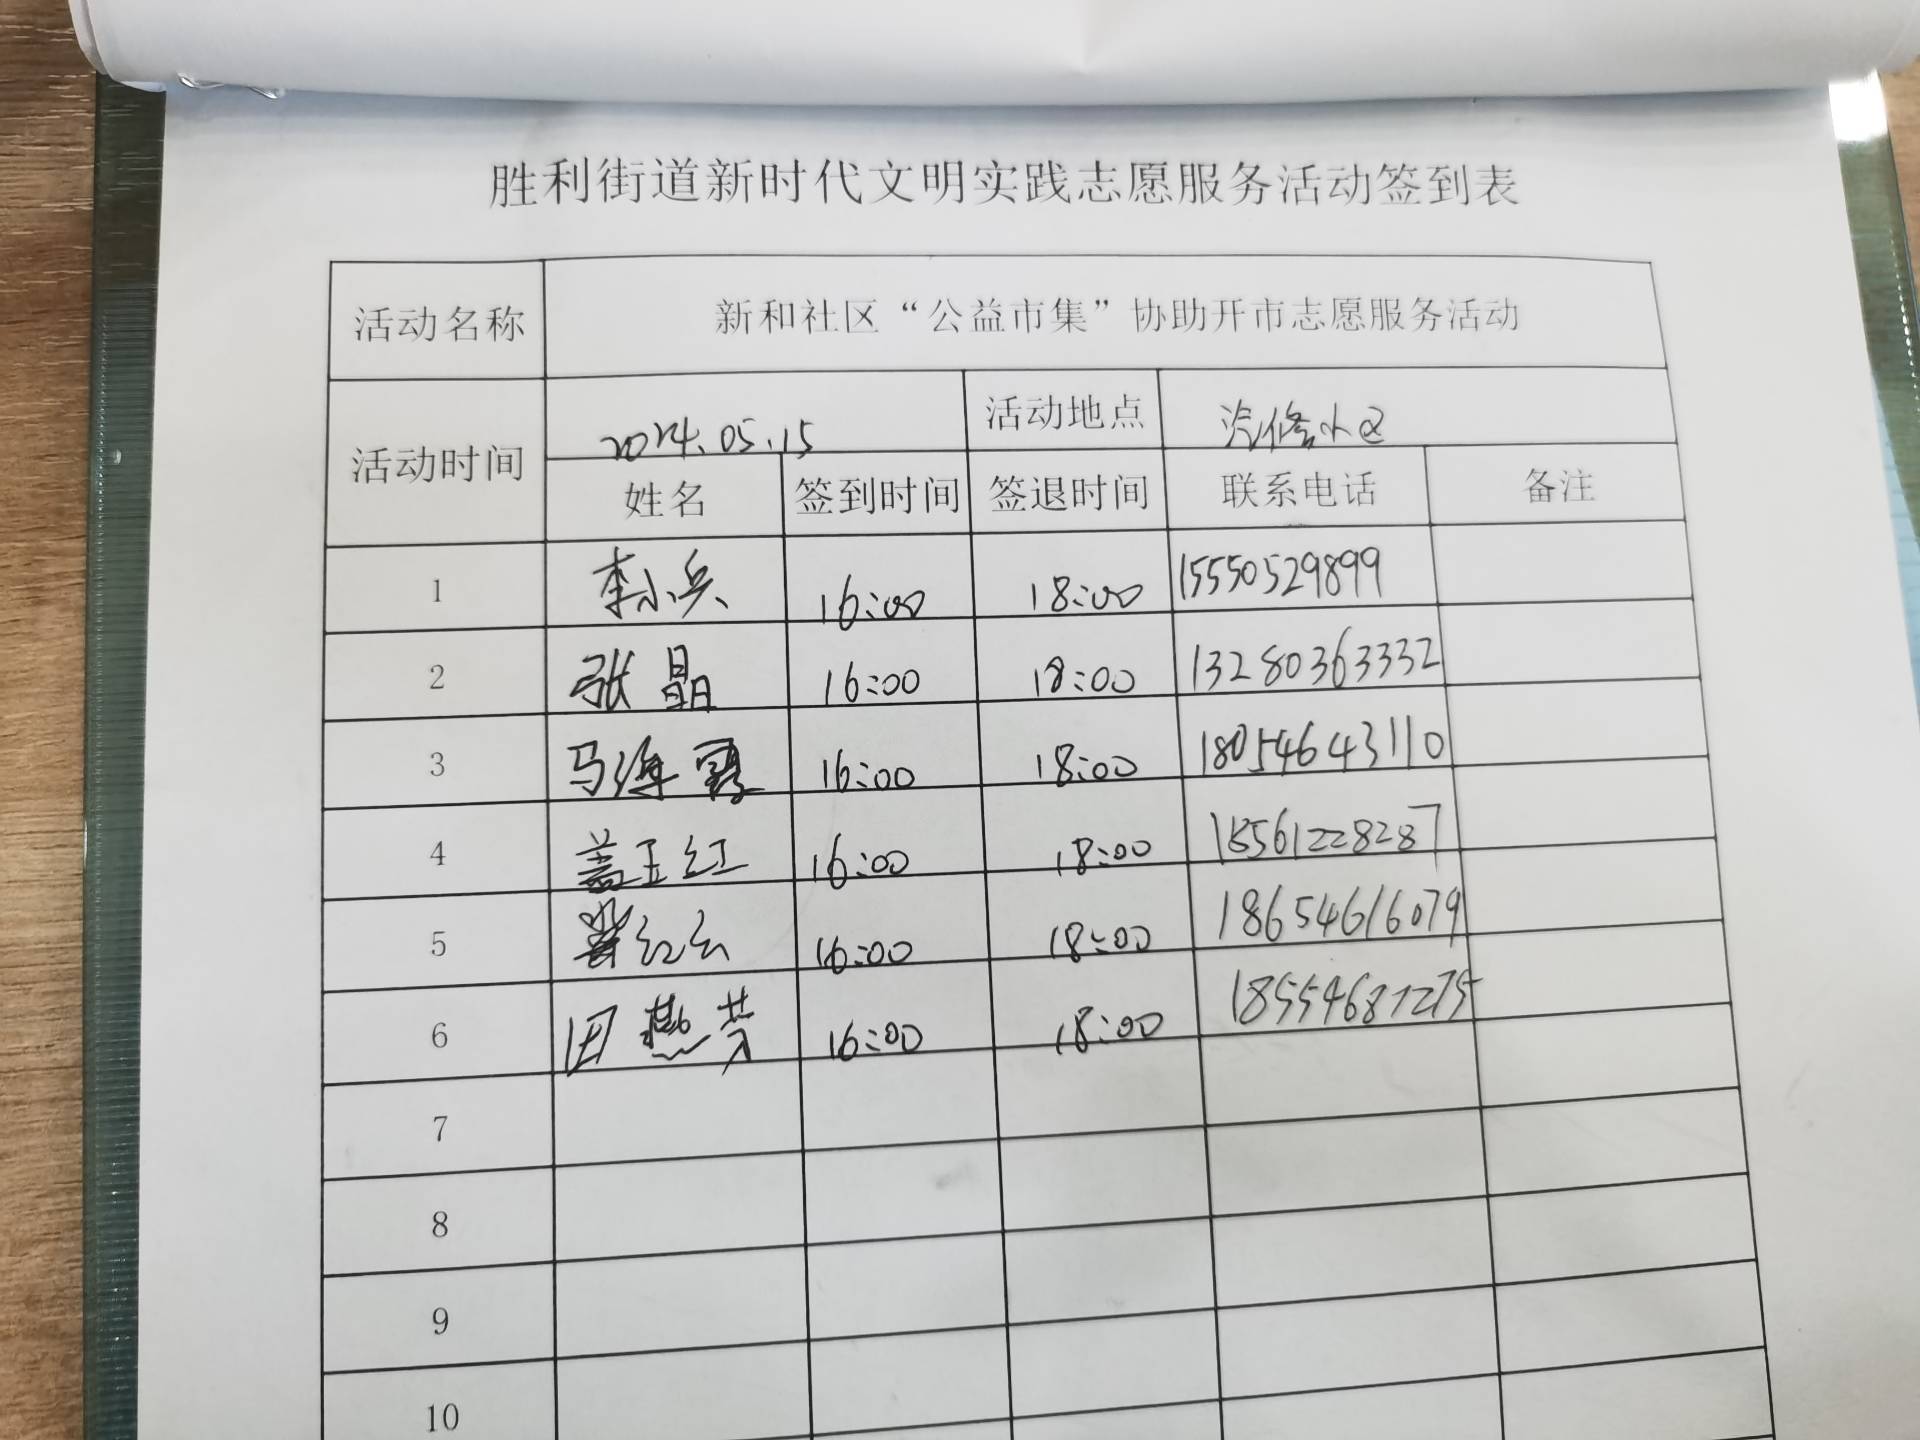 胜利街道新时代文明实践志愿服务活动签到表
活动名称 新和社区“公益市集”协助开市志愿服务活动
活动时间 2024.05.15 活动地点 汽修小区
姓名 签到时间 签退时间 联系电话 备注
1 李小兵 16:00 18:00 15550529899
2 张晶 16:00 18:00 13280363332
3 马海霞 16:00 18:00 18054643110
4 盖玉红 16:00 18:00 18561228287
5 红云 16:00 18:00 18654616079
6 田燕芳 16:00 18:00 18554681275
7
8
9
10